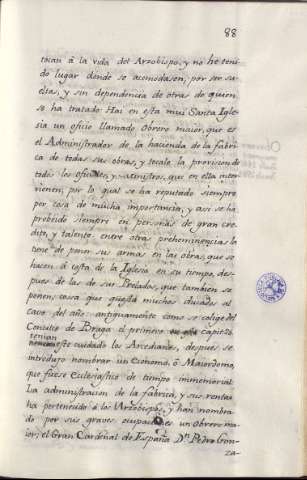 88
tocan à la vida del Arzobispo, y no he teni-
do lugar donde se acomodasen, por ser su
eltas, y sin dependencia de otras de quien
se ha tratado. Hai en esta mui Santa Igle-
sia un oficio llamado Obrero maior, que es
el Administrador de la hacienda de la fabri-
ca de todas sus obras, y tocale la provision de
todos los oficiales, y ministros, que en ella inter-
vienen, por lo qual se ha reputado siempre
por cosa de mucha importancia, y asi se ha
probeido siempre en personas de gran cre-
dito, y talento. entre otras preheminencias
tiene de poner sus armas en las obras, que se
hacen à costa de la Iglesia en su tiempo, des-
pues de las de sus Prelados, que tambien se
ponen, cosa que muchos ducados al
cavo del año. antiguamente como se colige del
Concilio de Braga el primero capit.
tenian este cuidado los Arcedianos, despues se
introdujo nombrar un Economo, ò Maiordomo,
que fuese Eclesiastico de tiempo immemorial
La administracion de la fabrica, y sus rentas
ha pertenecido à los Arzobispos, y han nombra-
do por sus graves ocupaciones un obrero ma-
ior; el Gran Cardenal de España Dn. Pedro Gon-
za-